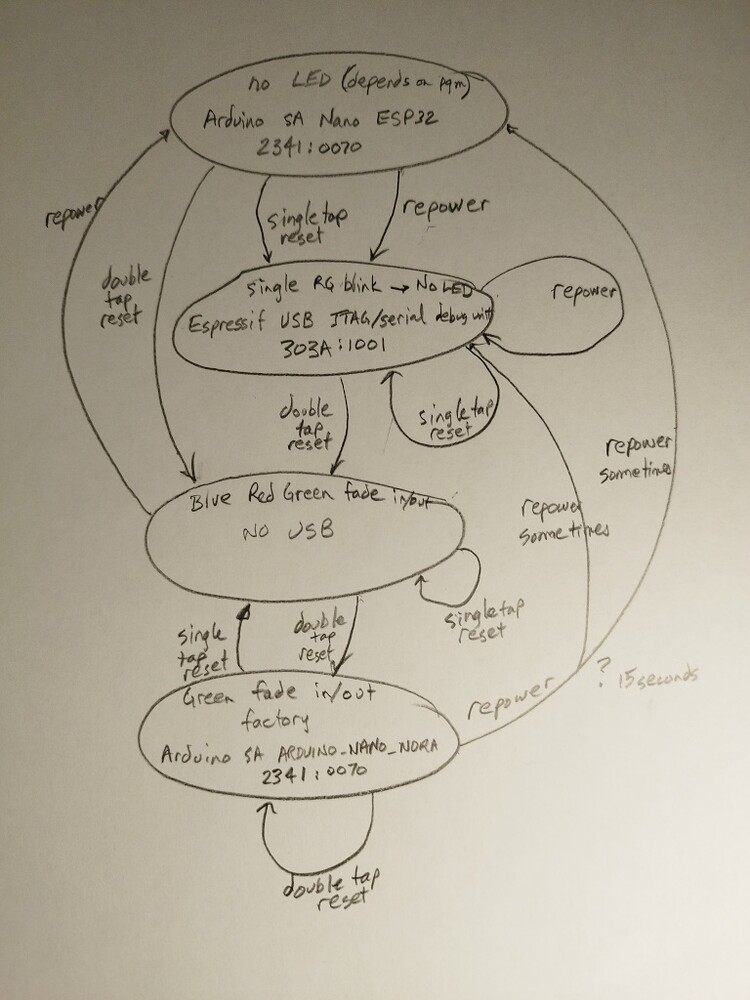 no LED (depends on pgm)
Arduino SA Nano ESP32
2341:0070
repower
double
tap
reset
single tap
reset
repower
single RG blink → No LED
Espressif USB JTAG/serial debug unit
303A:1001
repower
double
tap
reset
single tap
reset
repower
sometimes
repower
sometimes
Blue Red Green fade in/out
NO USB
single tap
reset
single
tap
reset
double
tap
reset
Green fade in/out
factory
Arduino SA ARDUINO_NANO_NORA
2341:0070
repower
? 15 seconds
double tap
reset